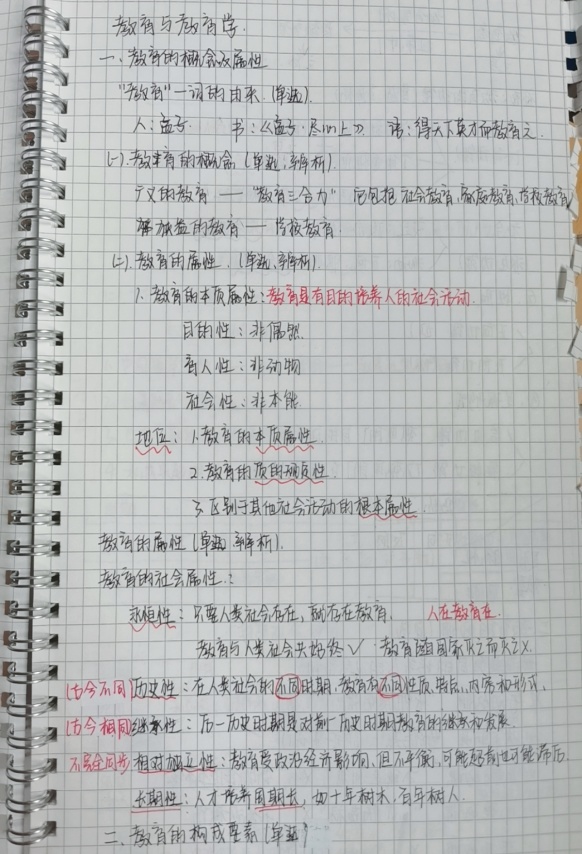 教育与教育学.
一、教育的概念及属性
"教育"一词的由来.(单选).
人:孟子. 书:《孟子·尽心上》. 语:得天下英才而教育之.
(一).教育的概念(单选,辨析).
广义的教育——"教育三合力" 它包括 社会教育,家庭教育,学校教育
狭义的教育——学校教育.
(二).教育的属性.(单选,辨析).
1.教育的本质属性:教育是有目的培养人的社会活动.
目的性:非偶然.
育人性:非动物
社会性:非本能.
地位:1.教育的本质属性.
2.教育的质的规定性.
3.区别于其他社会活动的根本属性.
教育的属性(单选,辨析).
教育的社会属性:
永恒性:只要人类社会存在,就存在教育. 人在教育在.
教育与人类社会共始终✓ 教育随国家灭亡而灭亡X.
(古今不同)历史性:在人类社会的不同时期,教育有不同性质,特点,内容和形式.
(古今相同)继承性:后一历史时期是对前一历史时期教育的继承和发展.
不完全同步 相对独立性:教育受政治经济影响,但不平衡,可能超前也可能滞后.
长期性:人才培养周期长,如十年树木,百年树人.
二、教育的构成要素(单选)